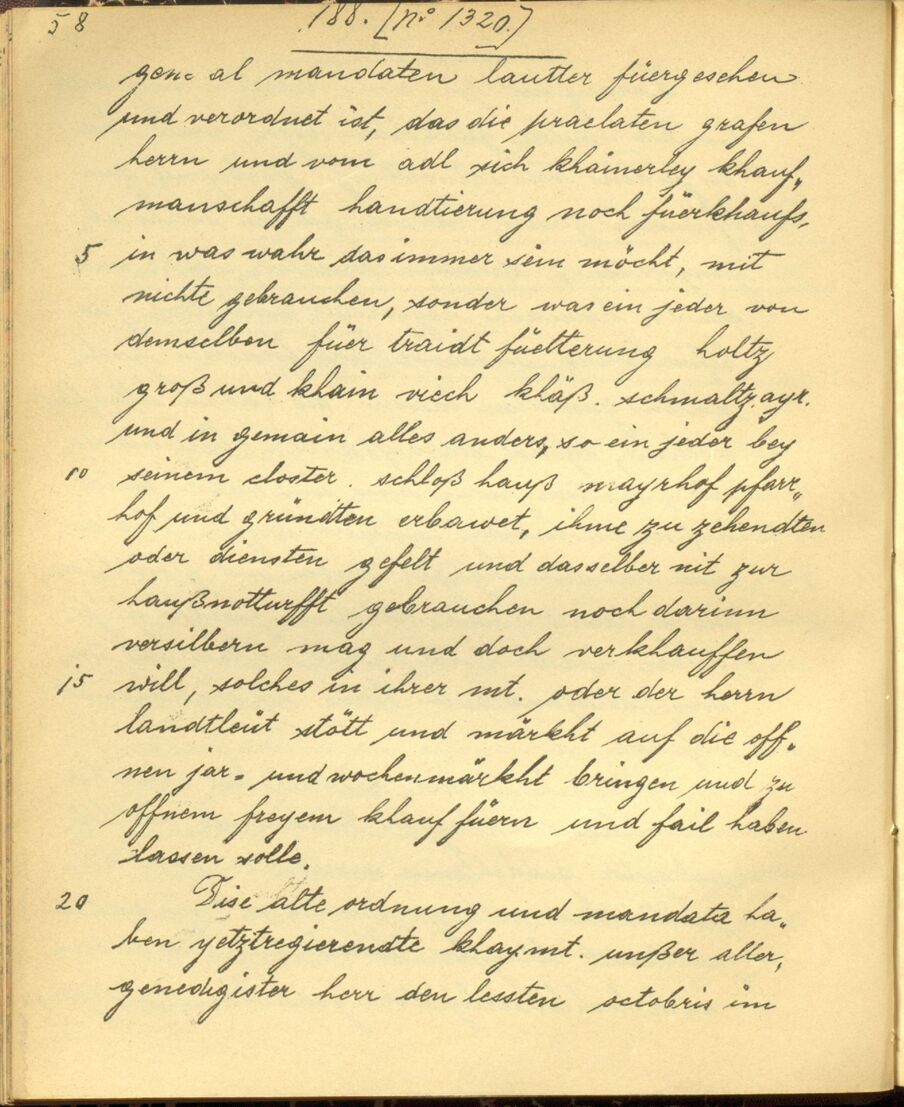 58
188. [No 1320.]
general mandaten lautter füergesehen
und verordnet ist, das die praelaten grafen
herrn und vom adl sich khainerley khauf„
manschafft handtierung noch füerkhaufs,
5 in was wahr das immer sein möcht, mit
nichte gebrauchen, sonder was ein jeder von
demselben füer traidt füetterung holtz
groß und khain viech khäß. schmaltz. ayr.
und in gemain alles anders, so ein jeder bey
10 seinem closter. schloß hauß mayrhof pfarr„
hof und gründten erbawet, ihme zu zehendten
oder diensten gefelt und dasselber nit zur
haußnotturfft gebrauchen noch darinn
versilbern mag und doch verkhauffen
15 will, solches in ihrer mt. oder der herrn
landtleüt stött und märkht auf die off„
nen jar- und wochenmärkht bringen und zu
offnem freyem khauf füern und fail haben
lassen solle.
20 Dise alte ordnung und mandata ha„
ben yetztregierendte khay. mt. unßer aller„
genedigister herr den lessten octobris im